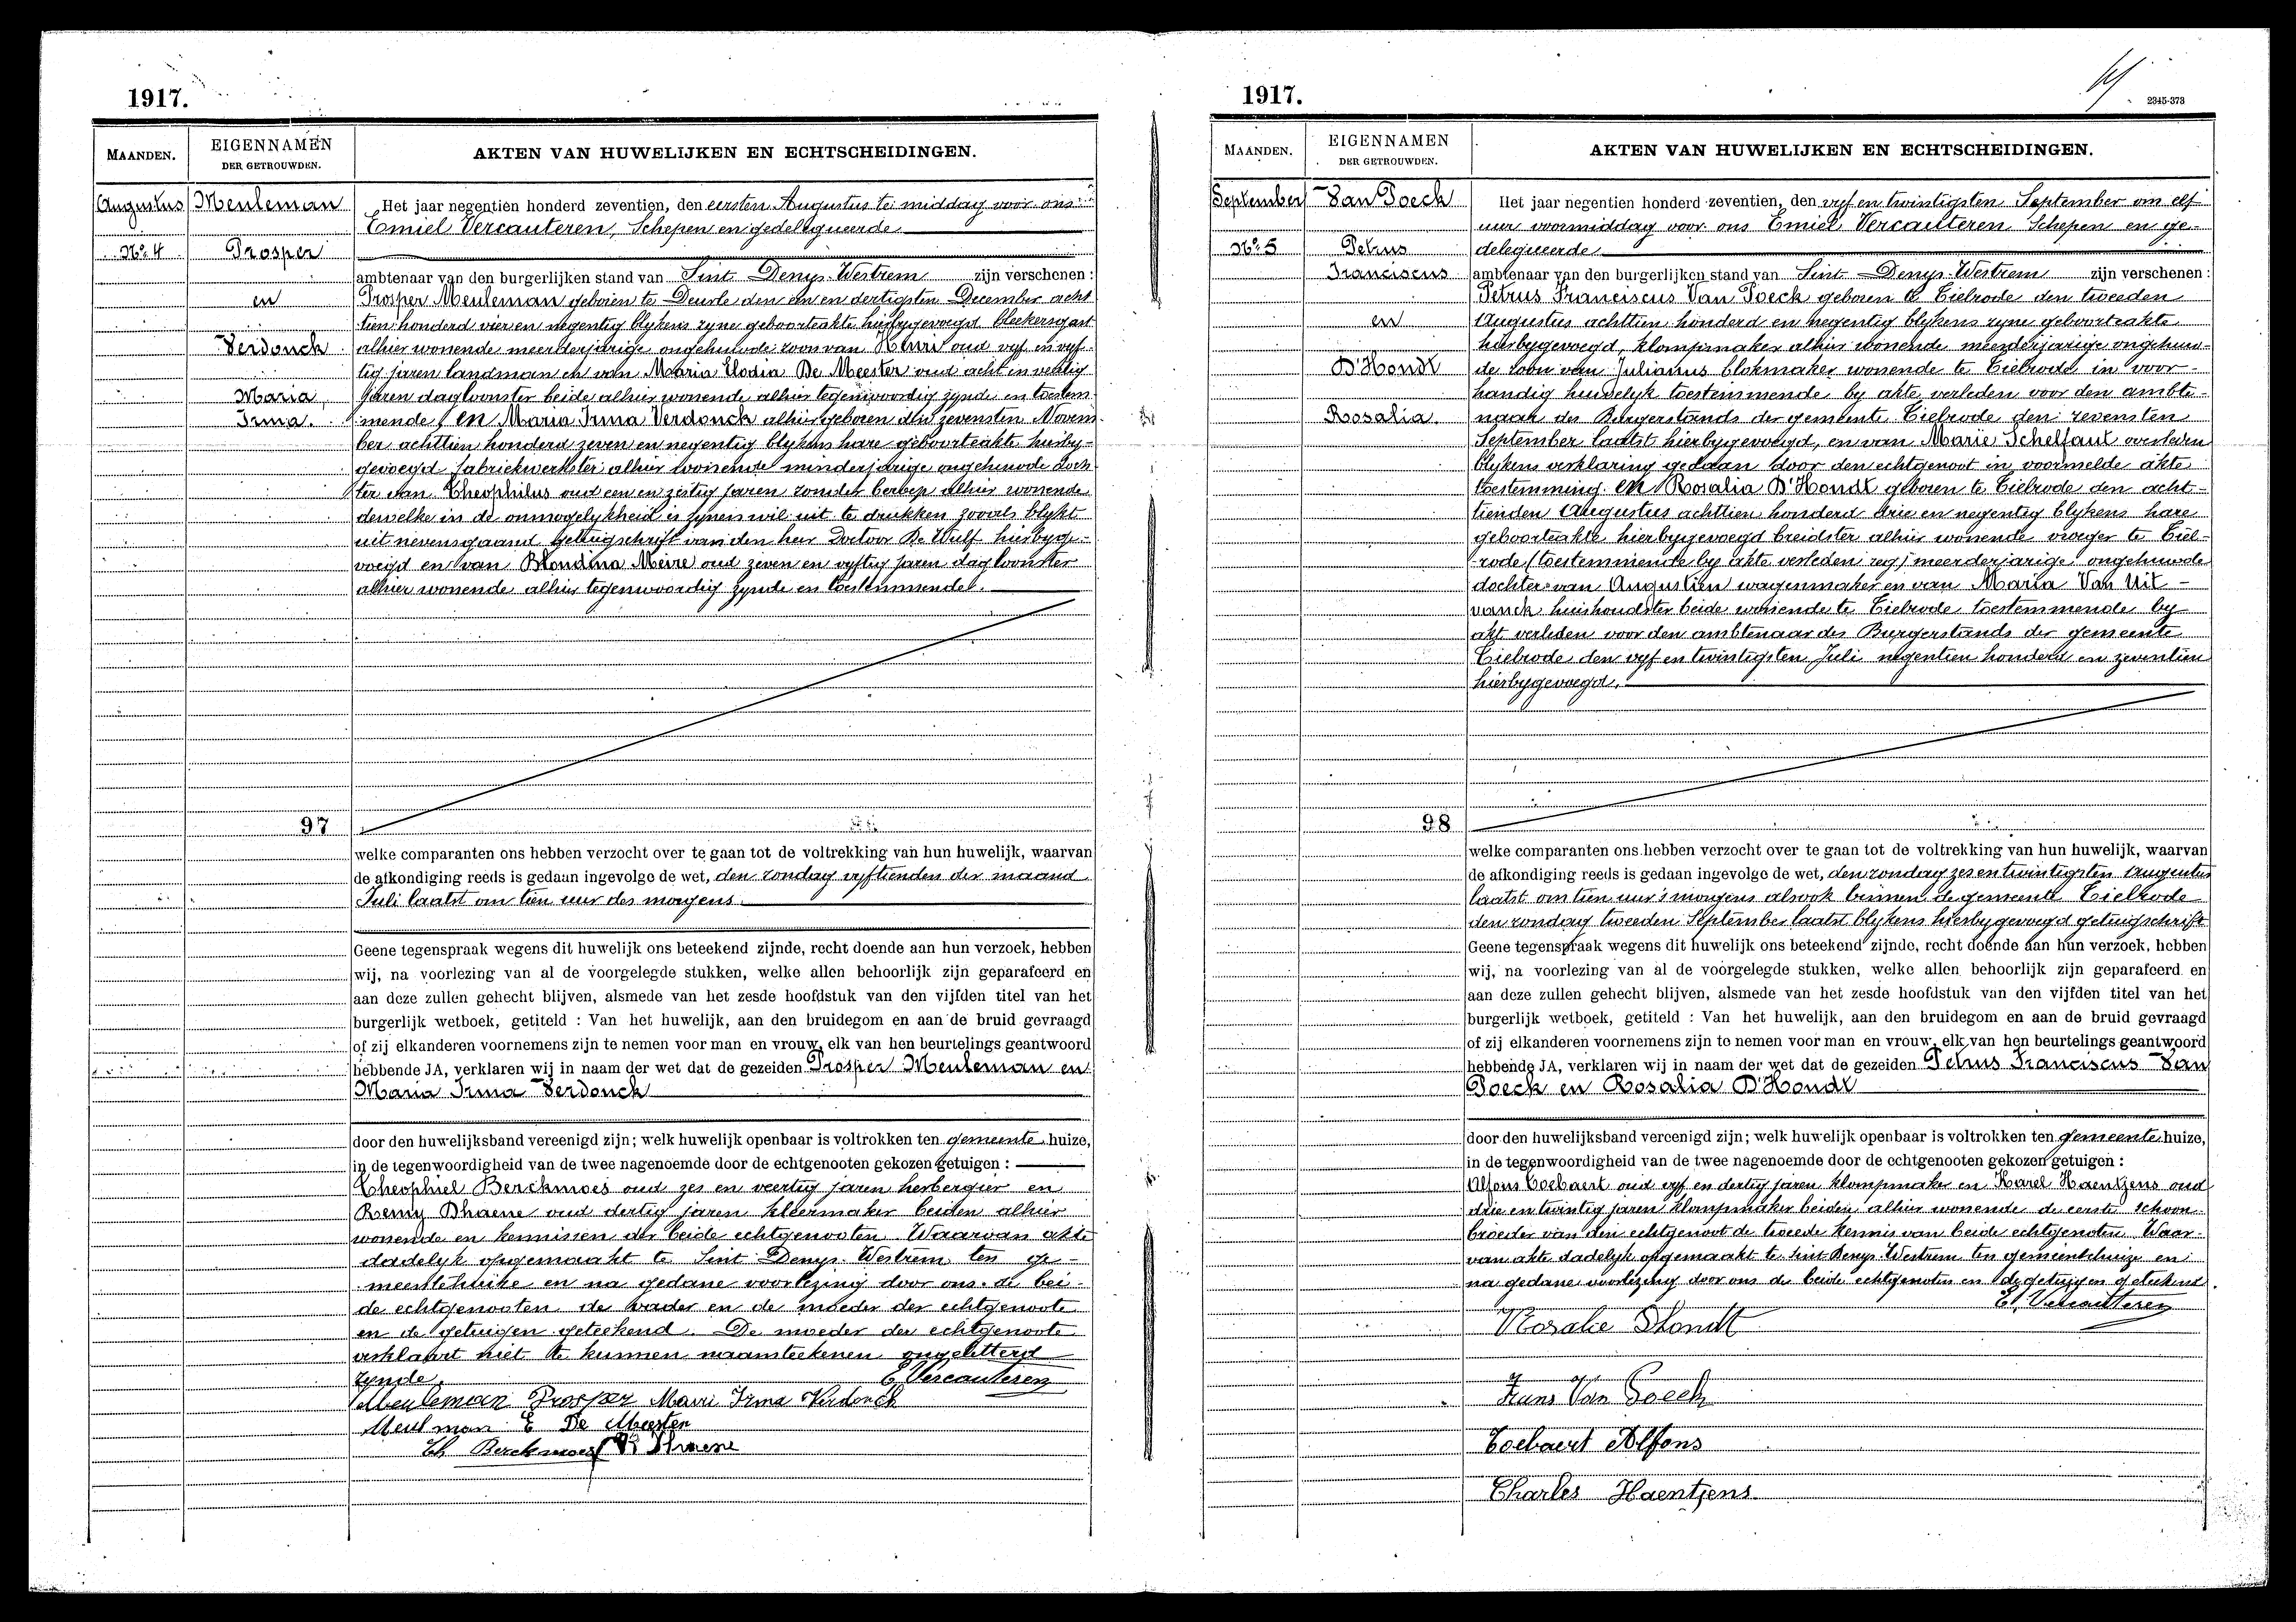 1917.
MAANDEN.
EIGENNAMEN
DER GETROUWDEN.
AKTEN VAN HUWELIJKEN EN ECHTSCHEIDINGEN.
Augustus
Meuleman
Het jaar negentien honderd zeventien, den eersten Augustus te middag voor ons
Emiel Vercauteren, Schepen en gedelegueerde
No 4
Prosper
ambtenaar van den burgerlijken stand van Sint Denys-Westrem zijn verschenen :
en
Prosper Meuleman geboren te Deurle den een en dertigsten December acht
tien honderd vier en negentig blykens zyne geboorteakte hierbygevoegd bleekersgast
Verdonck
alhier wonende meerderjarige ongehuwde zoon van Henri oud vyf en vyf-
tig jaren landman en van Maria Elodia De Meester oud acht en veertig
Maria
jaren dagloonster beide alhier wonende alhier tegenwoordig zynde en toestem
Irma.
mende, en Maria Irma Verdonck alhier geboren den zevensten Novem
ber achttien honderd zeven en negentig blykens hare geboorteakte hierby-
gevoegd fabriekwerkster alhier wonende minderjarige ongehuwde doch
ter van Theophilus oud een en zestig jaren zonder beroep alhier wonende
dewelke in de onmogelykheid is zynen wil uit te drukken zooals blykt
uit nevensgaand getuigschrift van den heer Doctoor De Wulf hierbyge-
voegd en van Blondina Meire oud zeven en vyftig jaren dagloonster
alhier wonende alhier tegenwoordig zynde en toestemmende.
97
welke comparanten ons hebben verzocht over te gaan tot de voltrekking van hun huwelijk, waarvan
de afkondiging reeds is gedaan ingevolge de wet, den zondag vyftienden der maand
Juli laatst om tien uur des morgens.
Geene tegenspraak wegens dit huwelijk ons beteekend zijnde, recht doende aan hun verzoek, hebben
wij, na voorlezing van al de voorgelegde stukken, welke allen behoorlijk zijn geparafeerd en
aan deze zullen gehecht blijven, alsmede van het zesde hoofdstuk van den vijfden titel van het
burgerlijk wetboek, getiteld : Van het huwelijk, aan den bruidegom en aan de bruid gevraagd
of zij elkanderen voornemens zijn te nemen voor man en vrouw, elk van hen beurtelings geantwoord
hebbende JA, verklaren wij in naam der wet dat de gezeiden Prosper Meuleman en
Maria Irma Verdonck
door den huwelijksband vereenigd zijn; welk huwelijk openbaar is voltrokken ten gemeente huize,
in de tegenwoordigheid van de twee nagenoemde door de echtgenooten gekozen getuigen :
Theophiel Berckmoes oud zes en veertig jaren herbergier en
Remy Dhaene oud dertig jaren kleermaker beiden alhier
wonende en kennissen der beide echtgenooten. Waarvan akte
dadelyk opgemaakt te Sint Denys-Westrem ten ge-
meentehuize en na gedane voorlezing door ons de bei-
de echtgenooten de vader en de moeder der echtgenoote
en de getuigen geteekend. De moeder der echtgenoote
verklaart niet te kunnen naamteekenen ongeletterd
zynde.
E. Vercauteren
Meuleman Prosper Marie Irma Verdonck
Meulman E De Meester
Th Berckmoes R Dhaene
1917.
2345-373
MAANDEN.
EIGENNAMEN
DER GETROUWDEN.
AKTEN VAN HUWELIJKEN EN ECHTSCHEIDINGEN.
September
Van Poeck
Het jaar negentien honderd zeventien, den vyf en twintigsten September om elf
uur voormiddag voor ons Emiel Vercauteren Schepen en ge-
No 5
Petrus
delegueerde
Franciscus
ambtenaar van den burgerlijken stand van Sint-Denys-Westrem zijn verschenen :
Petrus Franciscus Van Poeck geboren te Tielrode den tweeden
en
Augustus achttien honderd en negentig blykens zyne geboorteakte
hierbygevoegd, klompmaker alhier wonende meerderjarige ongehuw-
D'Hondt
de zoon van Julianus blokmaker wonende te Tielrode in voor-
handig huwelyk toestemmende by akte verleden voor den ambte-
Rosalia.
naar des Burgerstands der gemeente Tielrode den zevensten
September laatst hierbygevoegd, en van Marie Schelfaut overleden
blykens verklaring gedaan door den echtgenoot in voormelde akte
toestemming. en Rosalia D'Hondt geboren te Tielrode den acht-
tienden Augustus achttien honderd drie en negentig blykens hare
geboorteakte hierbygevoegd breidster alhier wonende vroeger te Tiel-
rode (toestemmende by akte verleden zeg) meerderjarige ongehuwde
dochter van Augustien wagenmaker en van Maria Van Uit-
vanck huishoudster beide wonende te Tielrode toestemmende by
akt verleden voor den ambtenaar des Burgerstands der gemeente
Tielrode den vyf en twintigsten Juli negentien honderd en zeventien
hierbygevoegd.
98
welke comparanten ons hebben verzocht over te gaan tot de voltrekking van hun huwelijk, waarvan
de afkondiging reeds is gedaan ingevolge de wet, den zondag zes en twintigsten Augustus
laatst om tien uur 's morgens alsook binnen de gemeente Tielrode
den zondag tweeden September laatst blykens hierbygevoegd getuigschrift
Geene tegenspraak wegens dit huwelijk ons beteekend zijnde, recht doende aan hun verzoek, hebben
wij, na voorlezing van al de voorgelegde stukken, welke allen behoorlijk zijn geparafeerd en
aan deze zullen gehecht blijven, alsmede van het zesde hoofdstuk van den vijfden titel van het
burgerlijk wetboek, getiteld : Van het huwelijk, aan den bruidegom en aan de bruid gevraagd
of zij elkanderen voornemens zijn te nemen voor man en vrouw, elk van hen beurtelings geantwoord
hebbende JA, verklaren wij in naam der wet dat de gezeiden Petrus Franciscus Van
Poeck en Rosalia D'Hondt
door den huwelijksband vereenigd zijn; welk huwelijk openbaar is voltrokken ten gemeente huize,
in de tegenwoordigheid van de twee nagenoemde door de echtgenooten gekozen getuigen :
Alfons Coebaert oud vyf en dertig jaren klompmaker en Karel Haentjens oud
drie en twintig jaren klompmaker beiden alhier wonende de eerste schoon
broeder van den echtgenoot de tweede kennis van beide echtgenoten. Waar-
van akte dadelyk opgemaakt te Sint Denys-Westrem ten gemeentehuize en
na gedane voorlezing door ons de beide echtgenoten en de getuigen geteekend.
E. Vercauteren
Rosalie Dhondt
Frans Van Poeck
Coebaert Alfons
Charles Haentjens